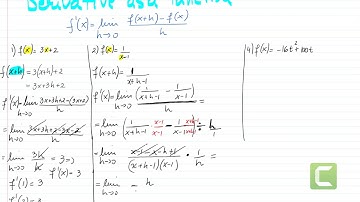 Derivative as a function
f'(x) = lim h→0 f(x+h) - f(x) / h
1) f(x) = 3x+2
f(x+h) = 3(x+h)+2
= 3x+3h+2
f'(x) = lim h→0 3x+3h+2-(3x+2) / h
= lim h→0 3x+3h+2-3x-2 / h
= lim h→0 3h / h = 3 = 3
f'(x) = 3
f'(1) = 3
2) f(x) = 1 / x-1
f(x+h) = 1 / x+h-1
f'(x) = lim h→0 (1 / x+h-1 - 1 / x-1) / h =
= lim h→0 (1 / x+h-1 · x-1 / x-1 - 1 / x-1 · x+h-1 / x+h-1) ÷ h / 1
= lim h→0 x-1-x-h+1 / (x+h-1)(x-1) · 1 / h =
= lim h→0 - h
4) f(x) = -16t²+100t